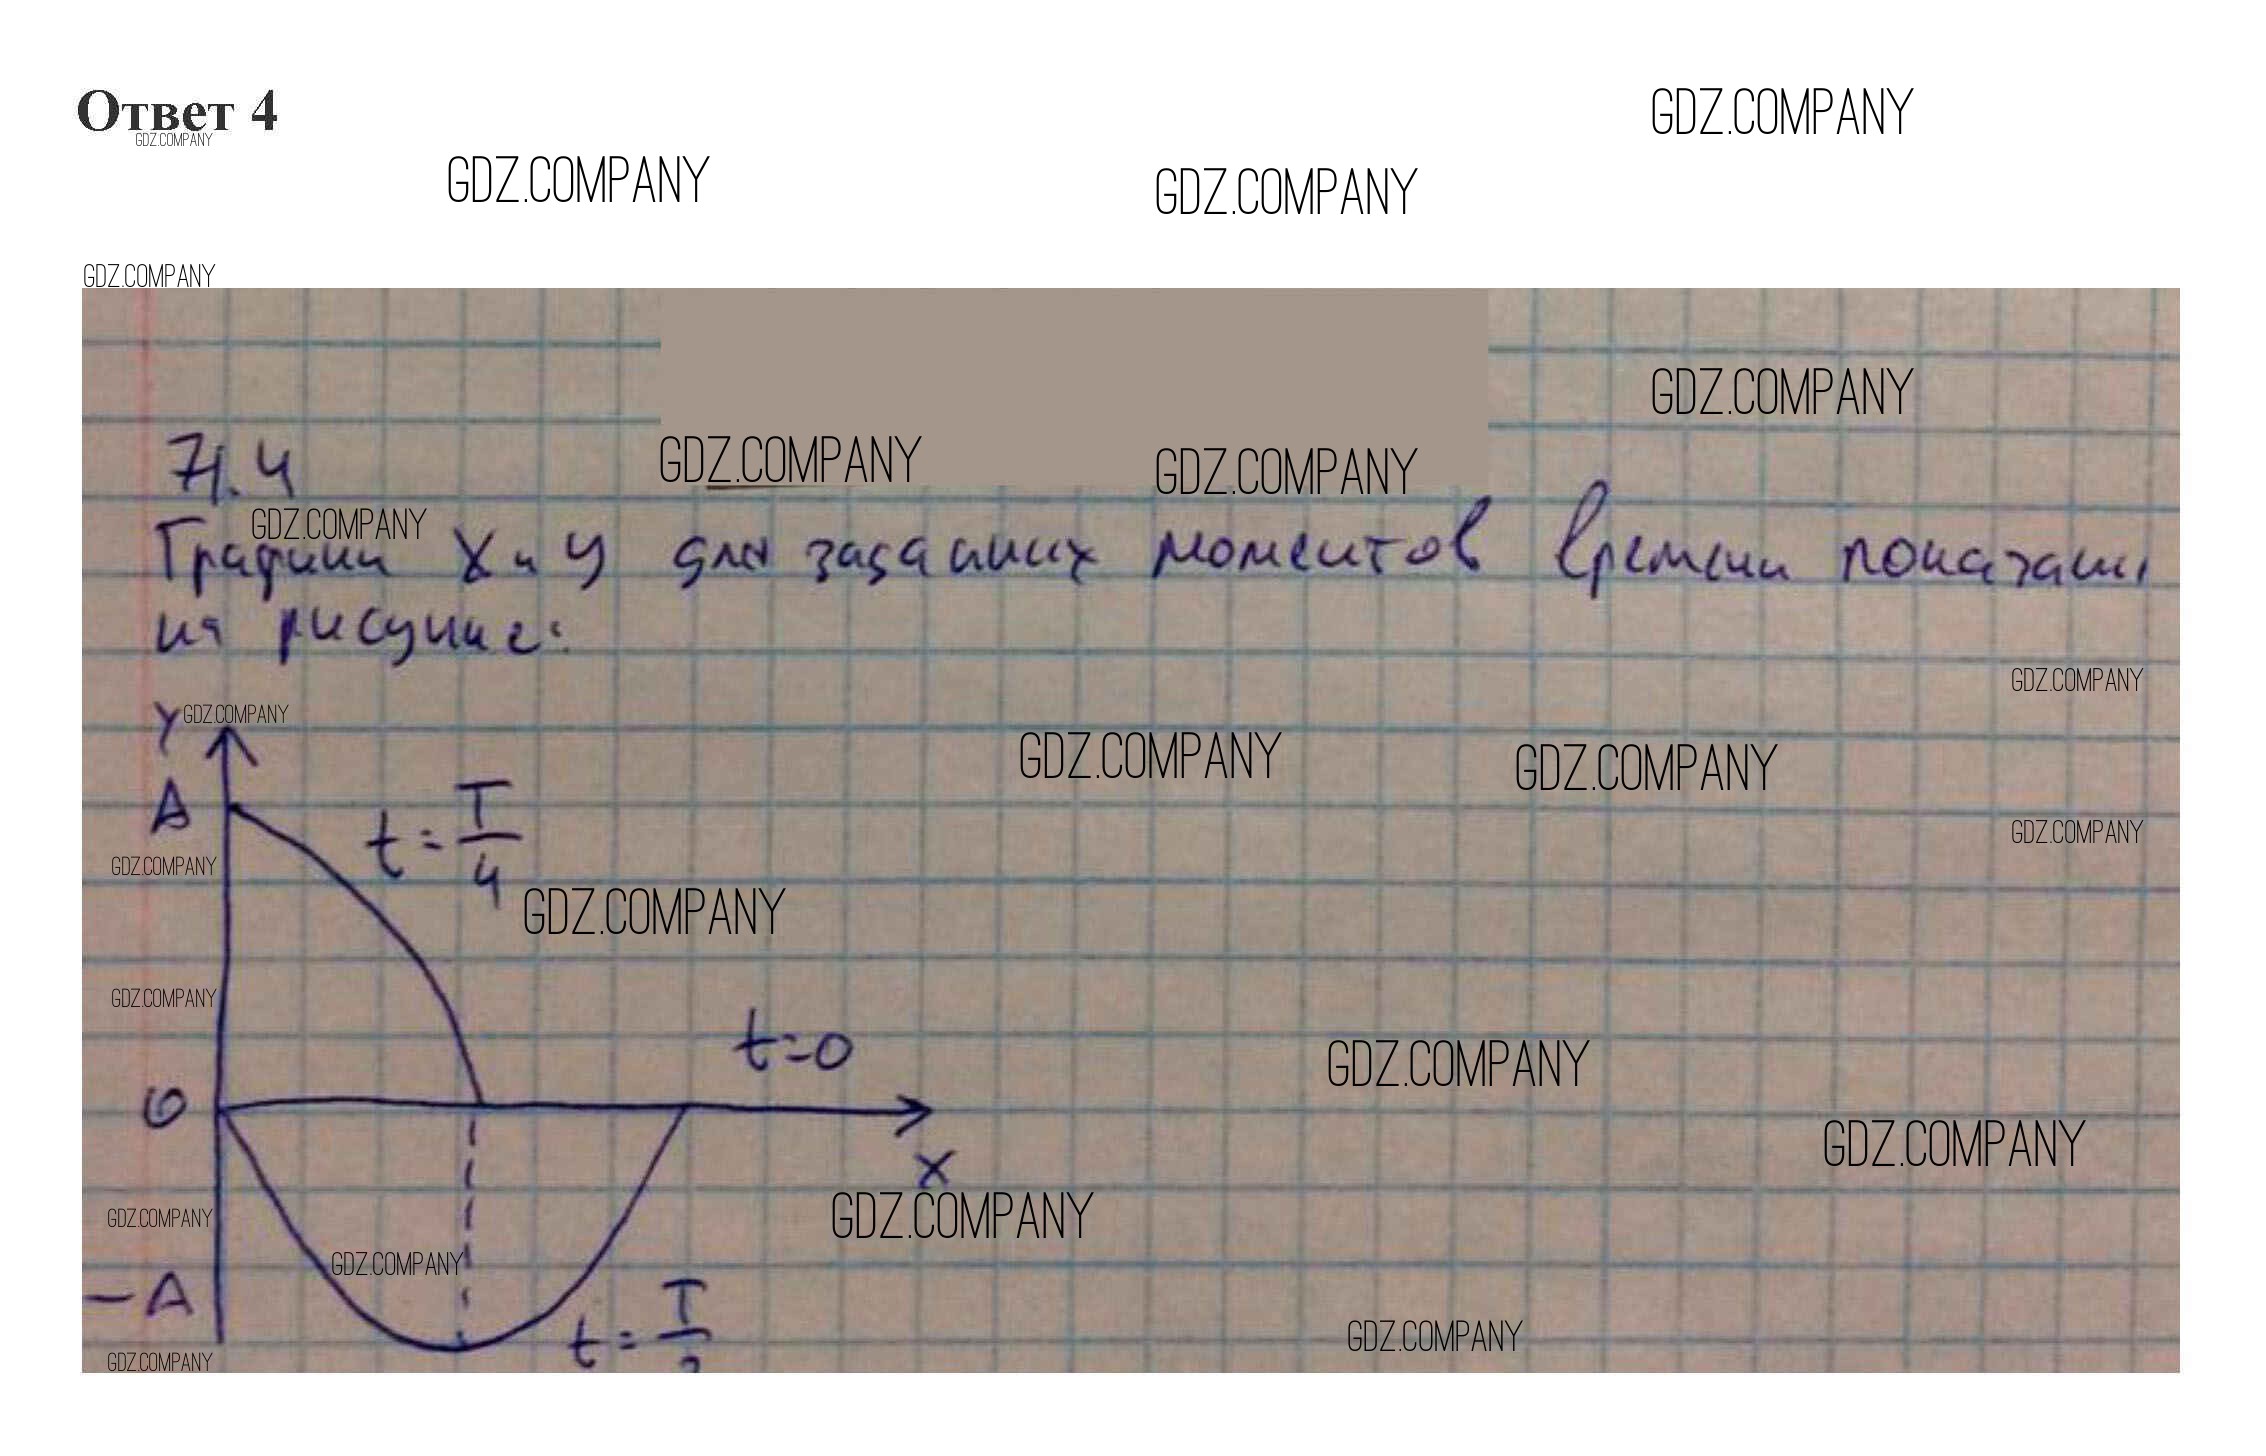 Ответ 4
GDZ.COMPANY
GDZ.COMPANY
GDZ.COMPANY
GDZ.COMPANY
GDZ.COMPANY
GDZ.COMPANY
71.4
GDZ.COMPANY
GDZ.COMPANY
GDZ.COMPANY
Графики X и Y для заданных моментов времени показаны
на рисунке:
GDZ.COMPANY
Y GDZ.COMPANY
GDZ.COMPANY
GDZ.COMPANY
A
t = T/4
GDZ.COMPANY
GDZ.COMPANY
GDZ.COMPANY
GDZ.COMPANY
t=0
GDZ.COMPANY
0
GDZ.COMPANY
X
GDZ.COMPANY
GDZ.COMPANY
GDZ.COMPANY
-A
t = T/
GDZ.COMPANY
GDZ.COMPANY